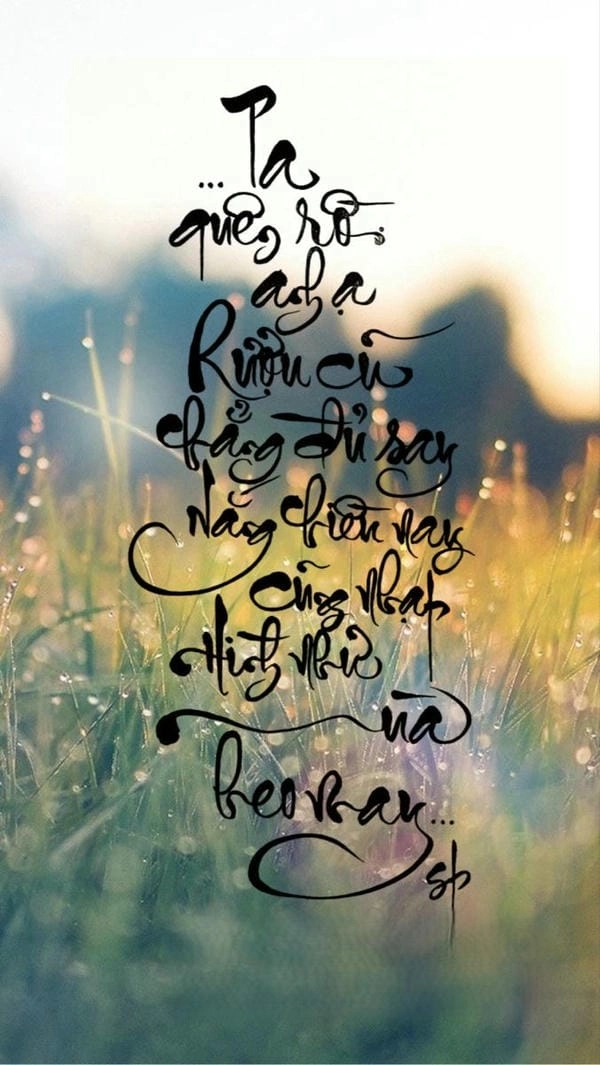 ...Ta
quên rồi
anh ạ
Rượu cũ
chẳng đủ say
Nắng chiều nay
cũng nhạt
Hình như
mùa
heo may...